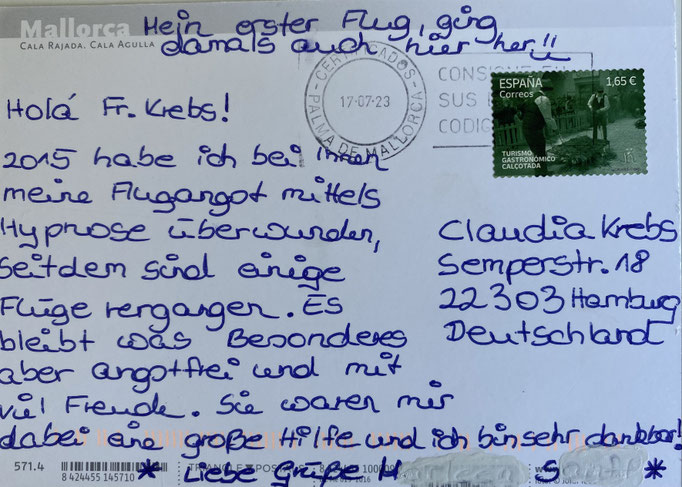 Mein erster Flug, ging
damals auch hier her!!
Mallorca
CALA RAJADA. CALA AGULLA
CERTIFICADOS
PALMA DE MALLORCA
17-07-23
CONSIGNE EN
SUS
CODIG
ESPAÑA
Correos
1,65 €
TURISMO
GASTRONÓMICO
CALÇOTADA
Holá Fr. Krebs!
2015 habe ich bei Ihnen
meine Flugangst mittels
Hypnose überwunden,
seitdem sind einige
Flüge vergangen. Es
bleibt was Besonderes
aber angstfrei und mit
viel Freude. Sie waren mir
dabei eine große Hilfe und ich bin sehr dankbar!
* Liebe Grüße H S *
Claudia Krebs
Semperstr. 18
22303 Hamburg
Deutschland
571.4
8 424455 145710